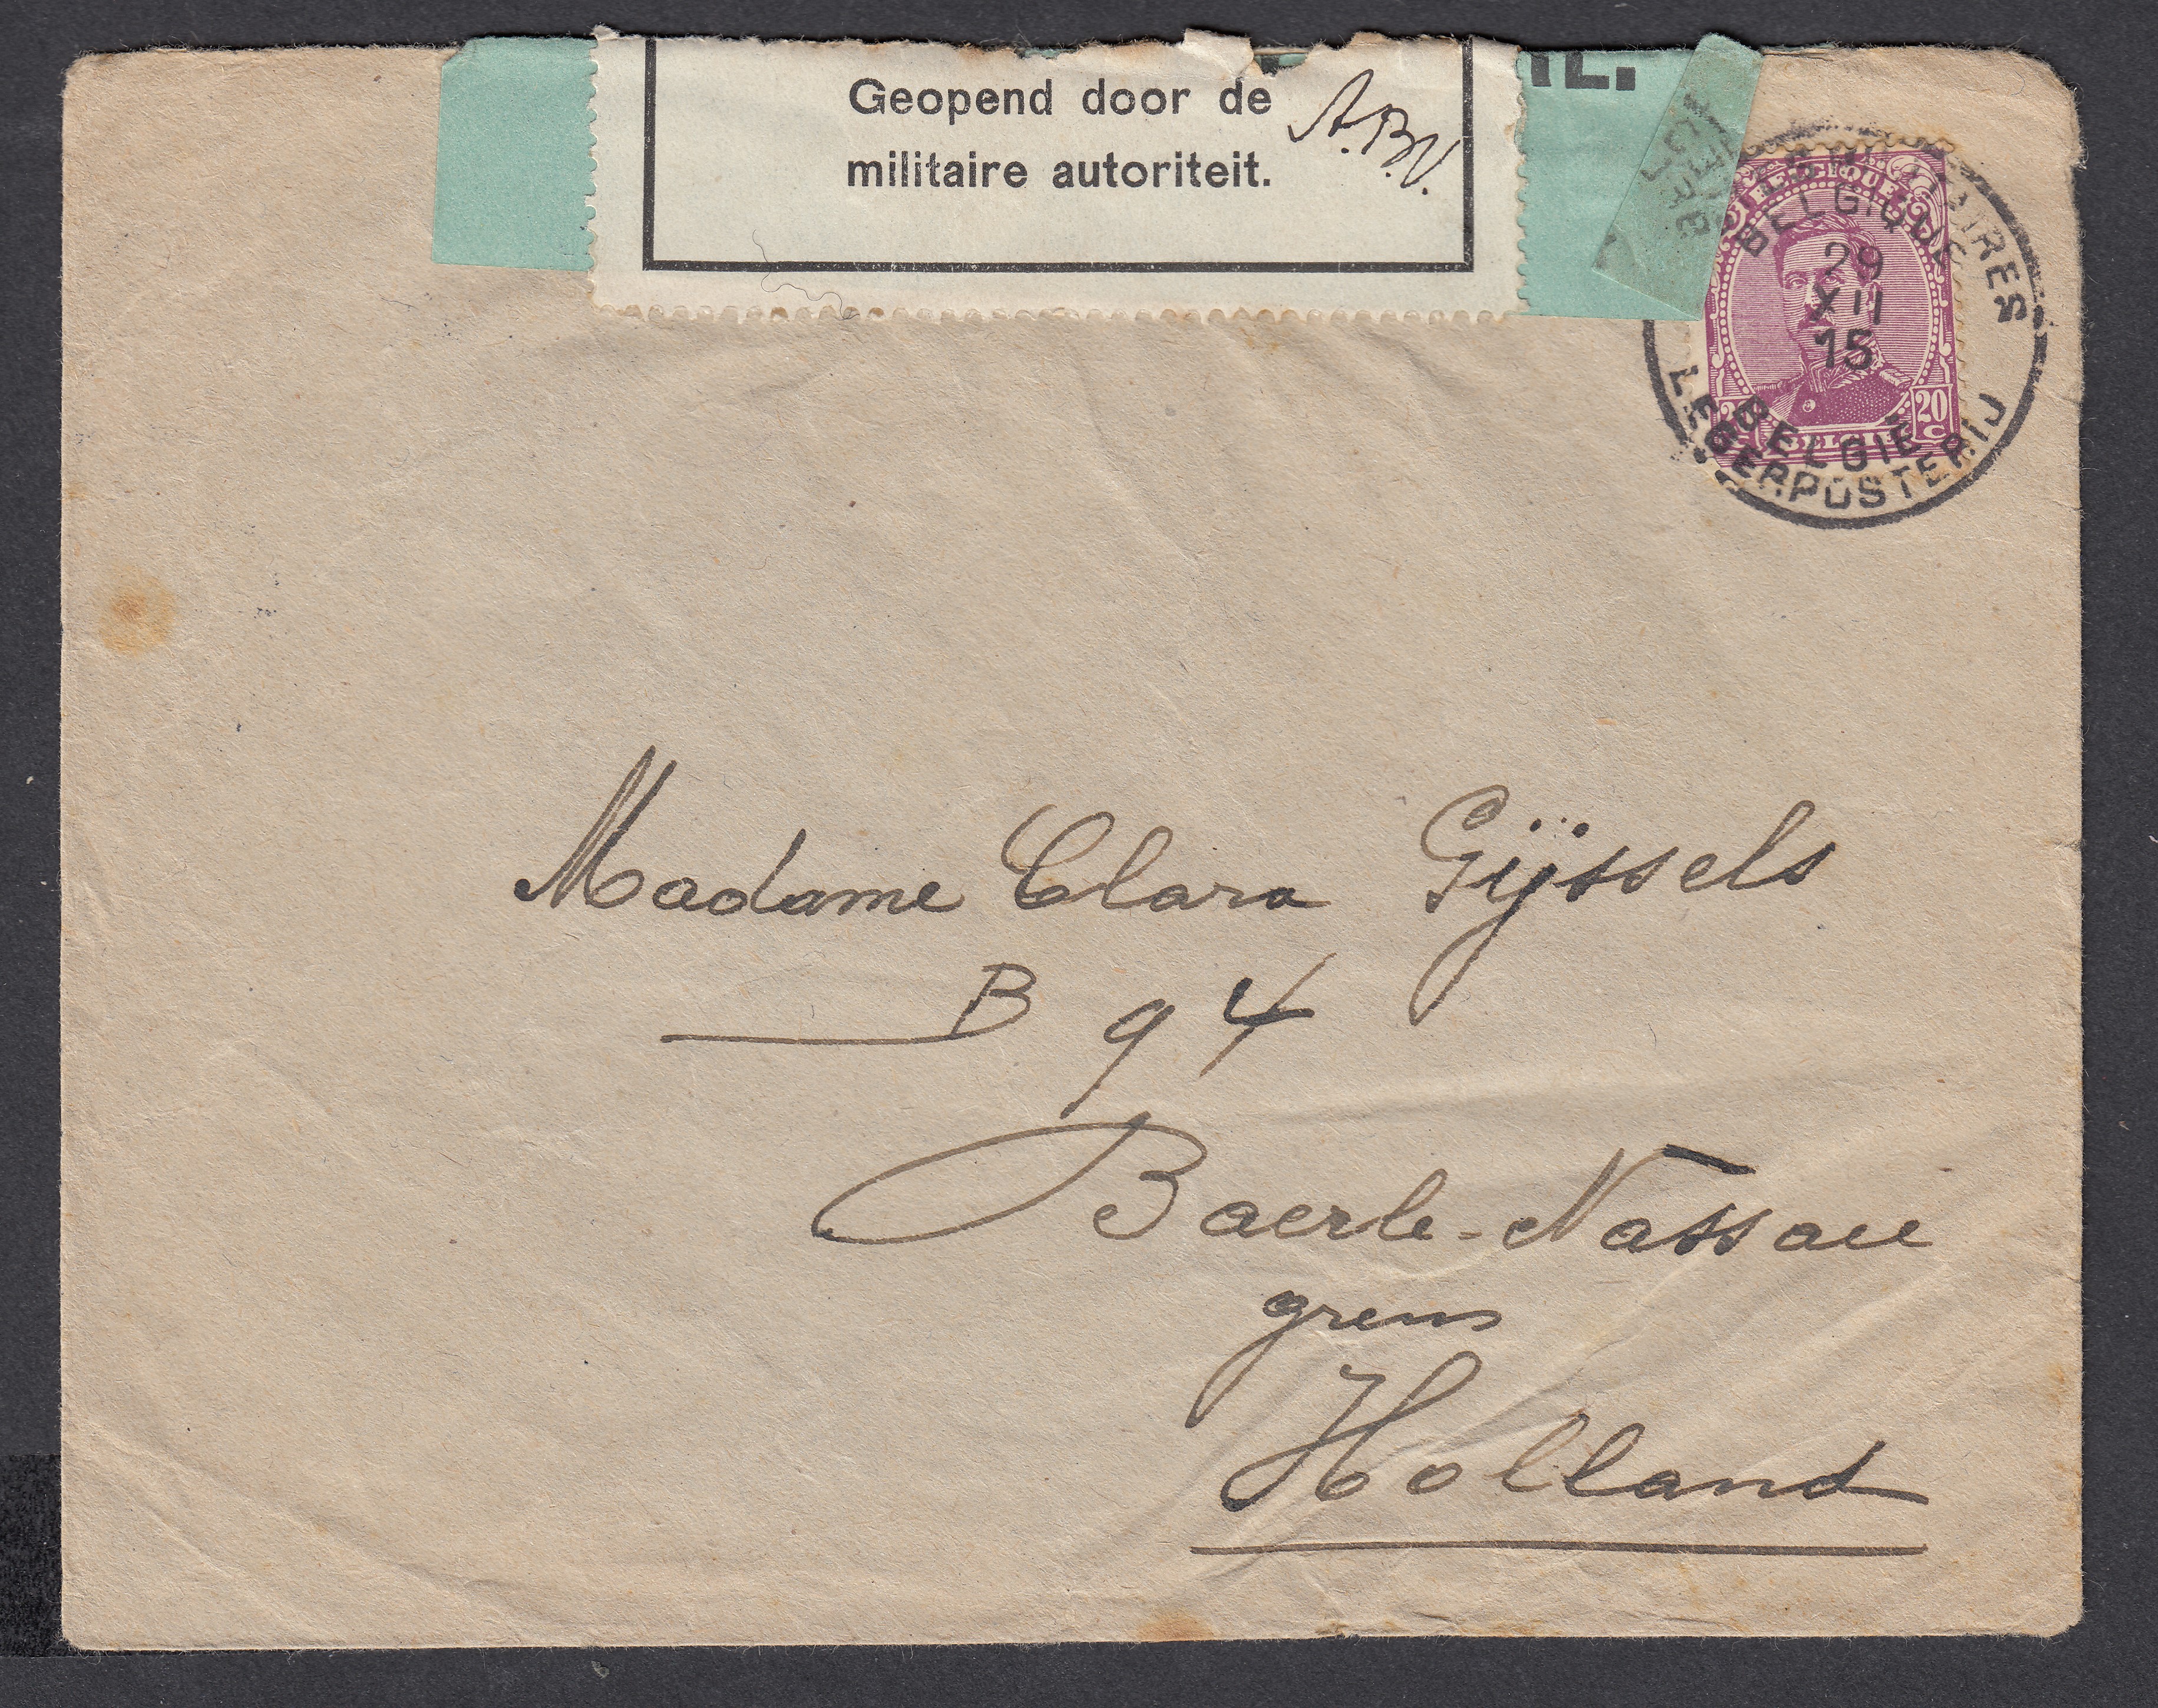 Geopend door de
militaire autoriteit.
A.B.V.
IL.
BELGIQUE
BELGIQUE
29
XII
15
BELGIE
LEGERPOSTERIJ
20
C
BELGIË
Madame Clara Gijssels
B 94
Baerle-Nassau
grens
Holland